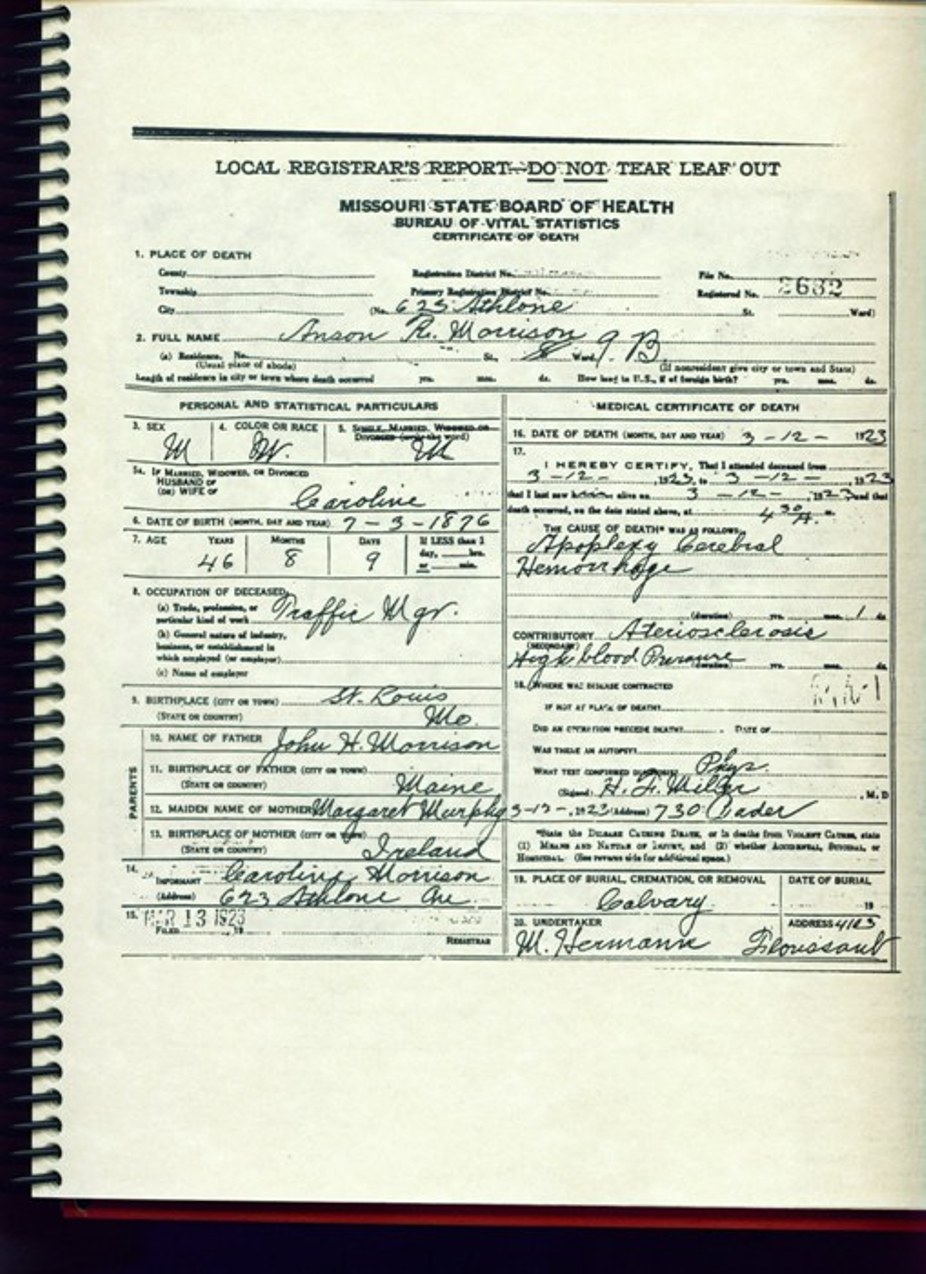 LOCAL REGISTRAR'S REPORT—DO NOT TEAR LEAF OUT
MISSOURI STATE BOARD OF HEALTH
BUREAU OF VITAL STATISTICS
CERTIFICATE OF DEATH
1. PLACE OF DEATH
County
Registration District No.
File No.
Township
Primary Registration District No.
Registered No. 2632
City
(No. 623 Athlone St. Ward)
2. FULL NAME Anson R. Morrison
(a) Residence. No. St., Ward. 9 B
(Usual place of abode) (If nonresident give city or town and State)
Length of residence in city or town where death occurred yrs. mos. ds. How long in U.S., if of foreign birth? yrs. mos. ds.
PERSONAL AND STATISTICAL PARTICULARS
3. SEX
4. COLOR OR RACE
5. SINGLE, MARRIED, WIDOWED OR
DIVORCED (write the word)
M W. M
5A. IF MARRIED, WIDOWED, OR DIVORCED
HUSBAND OF
(OR) WIFE OF Caroline
6. DATE OF BIRTH (MONTH, DAY AND YEAR) 7-3-1876
7. AGE YEARS MONTHS DAYS If LESS than 1
day, hrs.
or min.
46 8 9
8. OCCUPATION OF DECEASED
(a) Trade, profession, or
particular kind of work Traffic Mgr.
(b) General nature of industry,
business, or establishment in
which employed (or employer)
(c) Name of employer
9. BIRTHPLACE (CITY OR TOWN) St. Louis
(STATE OR COUNTRY) Mo.
PARENTS
10. NAME OF FATHER John H. Morrison
11. BIRTHPLACE OF FATHER (CITY OR TOWN)
(STATE OR COUNTRY) Maine
12. MAIDEN NAME OF MOTHER Margaret Murphy
13. BIRTHPLACE OF MOTHER (CITY OR TOWN)
(STATE OR COUNTRY) Ireland
14.
INFORMANT Caroline Morrison
(Address) 623 Athlone Ave
15. MAR 13 1923
FILED , 19
REGISTRAR
MEDICAL CERTIFICATE OF DEATH
16. DATE OF DEATH (MONTH, DAY AND YEAR) 3-12- 1923
17.
I HEREBY CERTIFY, That I attended deceased from
3-12-, 1923, to 3-12-, 1923
that I last saw him alive on 3-12-, 1923 and that
death occurred, on the date stated above, at 4 30 A. m.
THE CAUSE OF DEATH* WAS AS FOLLOWS:
Apoplexy Cerebral
Hemorrhage
(duration) yrs. mos. 1 ds.
CONTRIBUTORY Ateriosclerosis
(SECONDARY)
High blood Pressure (duration) yrs. mos. ds.
18. WHERE WAS DISEASE CONTRACTED
IF NOT AT PLACE OF DEATH?
DID AN OPERATION PRECEDE DEATH? DATE OF
WAS THERE AN AUTOPSY?
WHAT TEST CONFIRMED DIAGNOSIS? Phys.
(Signed) H. F. Miller, M. D
3-12-, 1923 (Address) 730
*State the DISEASE CAUSING DEATH, or in deaths from VIOLENT CAUSES, state
(1) MEANS AND NATURE OF INJURY, and (2) whether ACCIDENTAL, SUICIDAL, or
HOMICIDAL. (See reverse side for additional space.)
19. PLACE OF BURIAL, CREMATION, OR REMOVAL
DATE OF BURIAL
Calvary 19
20. UNDERTAKER
ADDRESS
M. Hermann Florissant